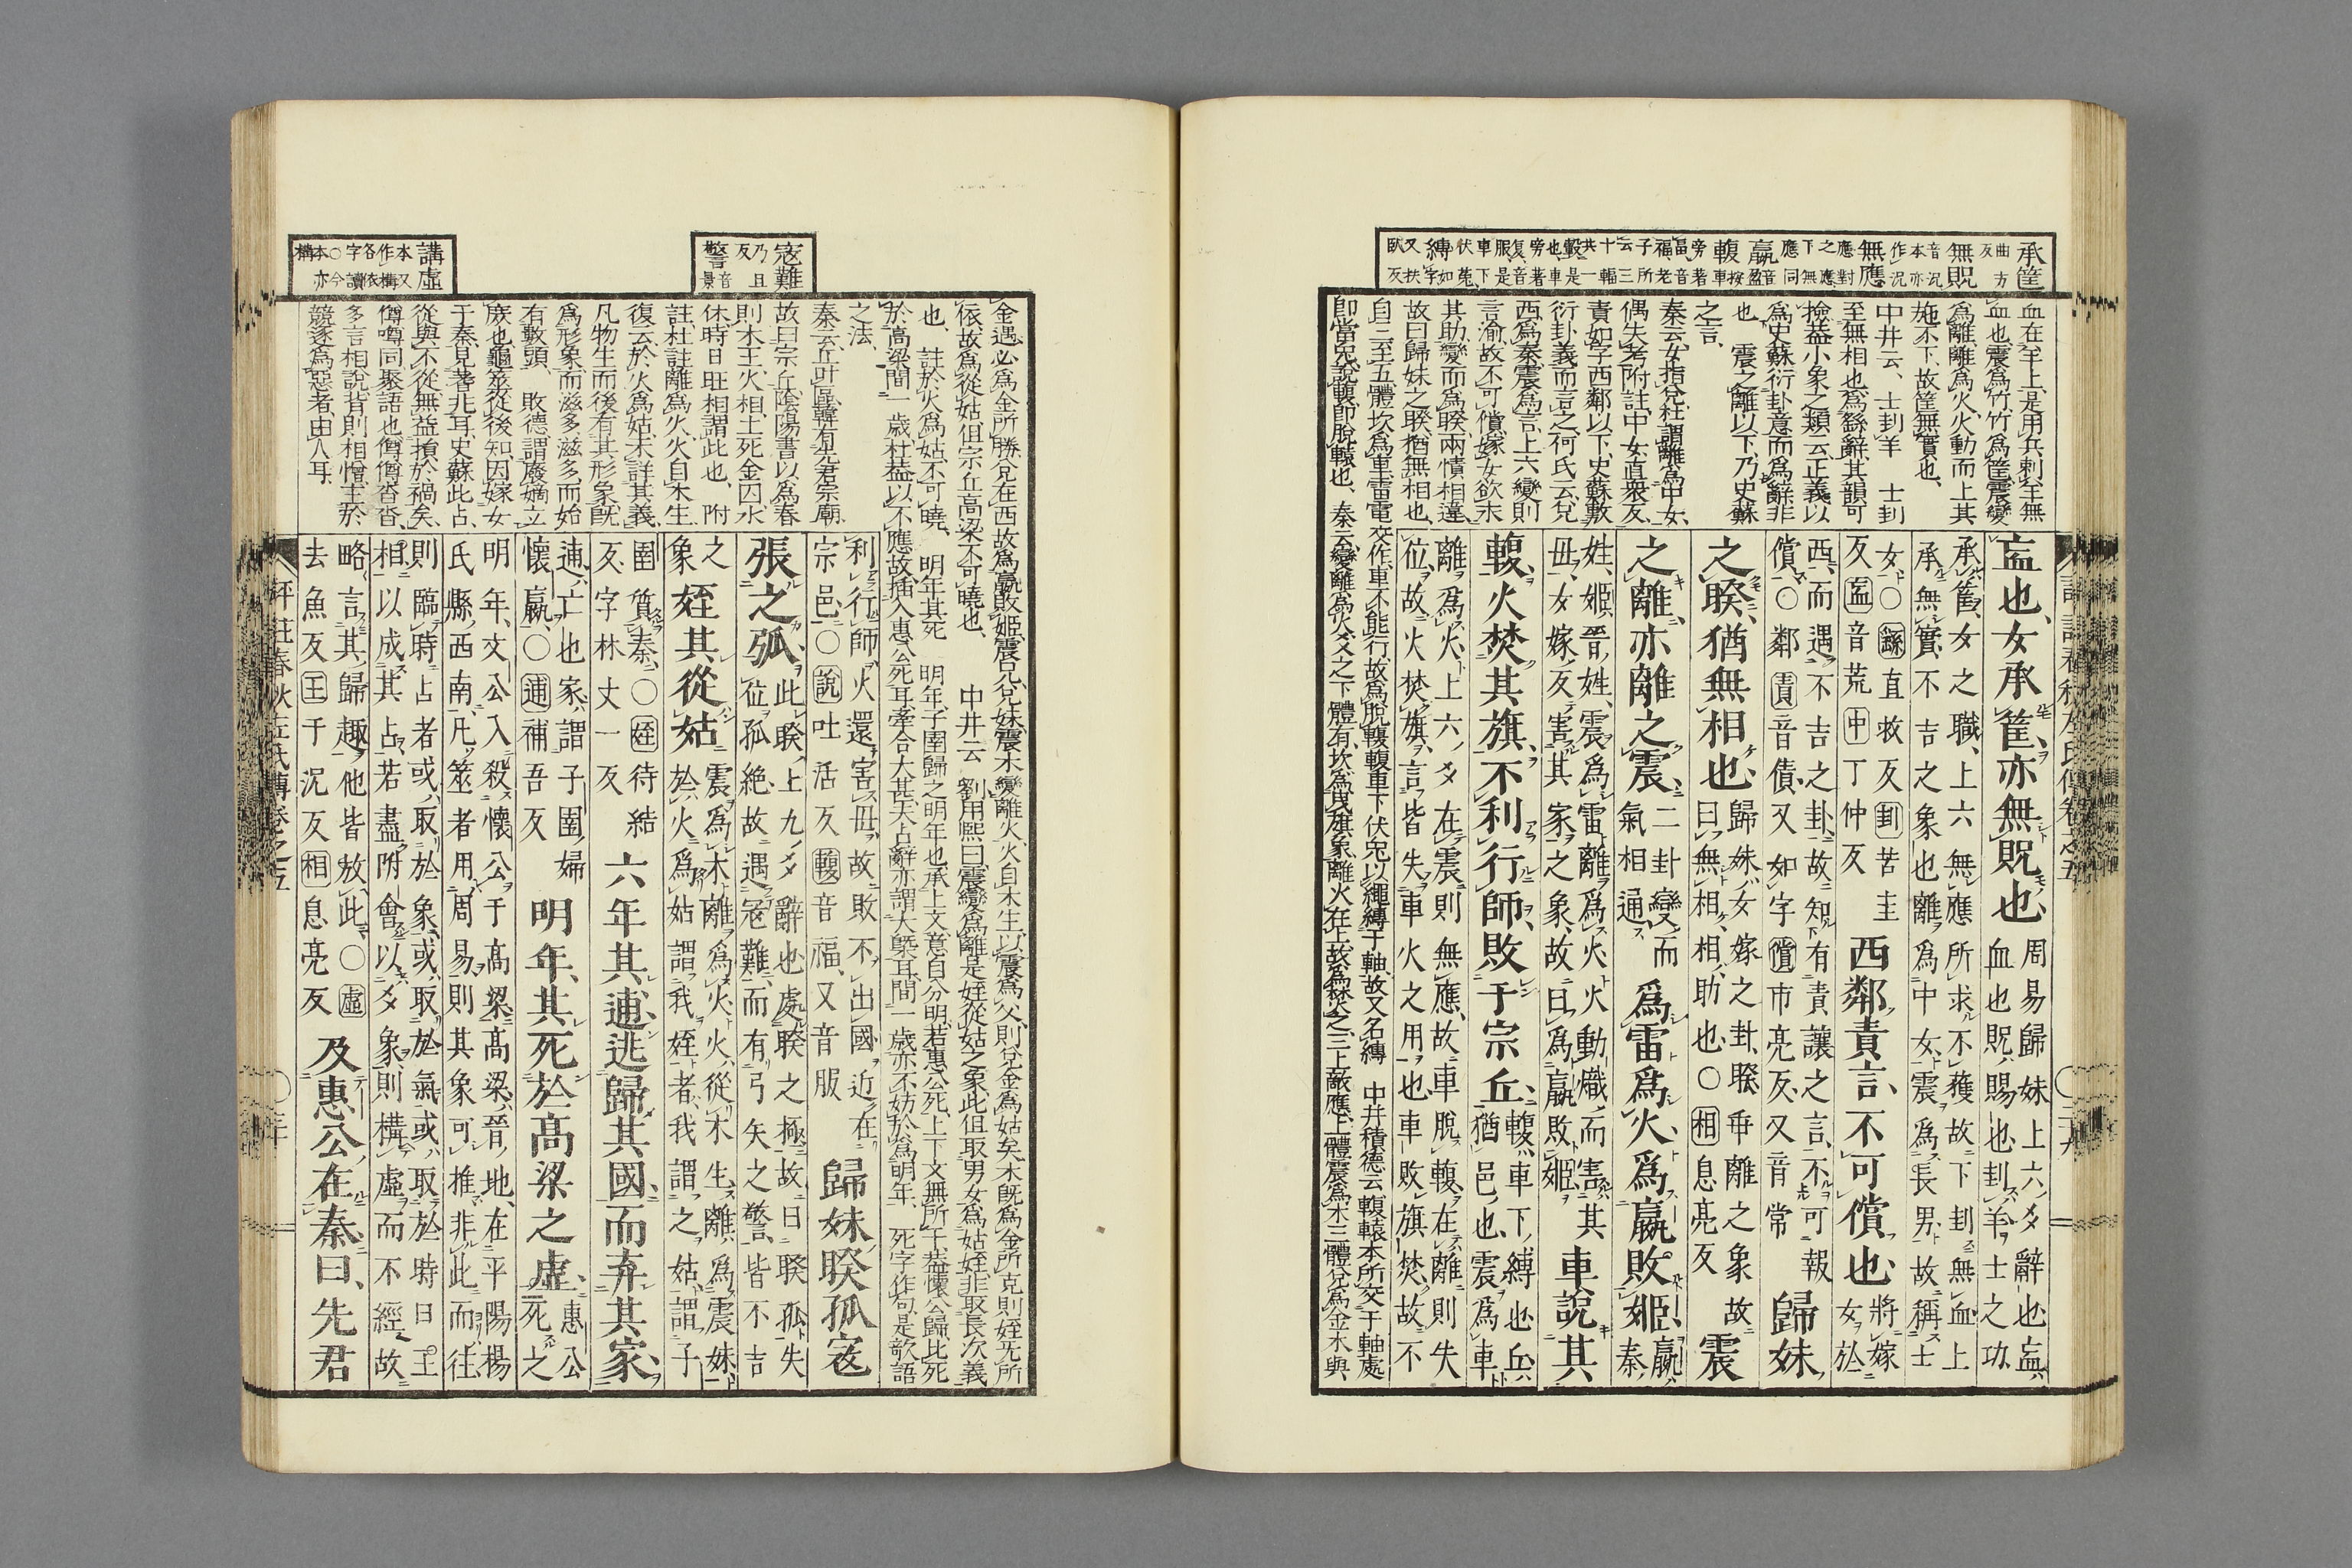 承筐
曲方反
無貺
音況本亦作況
無應
應對之應下無應同
嬴
音盈
輹
車旁著畐音福老子所云三十輻共一轂是也車旁著复音服是車下伏兔
縛
如字又扶臥反
血在羊上是用兵刺至無
血也震爲竹竹爲筐震變
爲離離爲火火動而上其
施不下故筐無實也
中井云士刲羊 士刲
至無相也爲繇辭其韻可
撿益小象之類云正義以
爲史蘇衍卦意而爲辭非
也 震之離以下乃史蘇
之言
秦云女指兌杜謂離爲中女
偶失考附註中女直衆反
責如字西鄰以下史蘇敷
衍卦義而言之何氏云兌
西爲秦震爲言上六變則
言渝故不可償嫁女欲未
其助變而爲睽兩情相違
故曰歸妹之睽猶無相也
自二至五體坎爲車雷電交作車不能行故爲脫輹輹車下伏兔以繩縛于軸故又名縛 中井積德云輹轅本所交于軸處
即當兔說輹即脫轅也 秦云變離爲火
衁也女承筐亦無貺也
周易歸妹上六爻辭也衁
血也貺賜也刲羊士之功
承筐女之職上六無應所求不獲故下刲無血上
承無實不吉之象也離爲中女震爲長男故稱士
女○繇直救反刲苦圭
反衁音荒中丁仲反
西鄰責言不可償也
將嫁
女於
西而遇不吉之卦故知有責讓之言不可報
償○鄰責音債又如字償市亮反又音常
歸妹
之睽猶無相也
歸妹女嫁之卦睽乖離之象故
曰無相相助也○相息亮反
震
之離亦離之震
二卦變而
氣相通
爲雷爲火爲嬴敗姬
嬴
秦
姓姬晉姓震爲雷離爲火火動熾而害其
毋女嫁反害其家之象故曰爲嬴敗姬
車說其
輹火焚其旗不利行師敗于宗丘
輹車下縛也丘
猶邑也震爲車
離爲火上六爻在震則無應故車脫輹在離則失
位故火焚旗言皆失車火之用也車敗旗焚故不
評註春秋左氏傳卷之五
二十九
寇難
乃且反
警
音景
講虛
本又作構各依字讀○今本亦構
金遇必爲金所勝兌在西故爲嬴敗姬震兄兌妹震木變離火火自木生以震爲父則兌金爲姑矣木既爲金所克則姪无所
依故爲從姑但宗丘高梁不可曉也 中井云 劉用熙曰震變爲離是姪從姑之象此但取男女爲姑姪非取長次義
也 註於火爲姑不可曉 明年其死 明年子圉歸之明年也承上文意自分明若惠公死上下文無所干益懷公歸比死
於高梁間一歲杜益以不應故插入惠公死耳牽合大甚夫占辭亦謂大槩耳間一歲亦不妨於爲明年 死字作句是歆語
之法
秦云丘叶區韓有先君宗廟
故曰宗丘陰陽書以爲春
則木王火相土死金囚水
休時日旺相謂此也 附
註杜註離爲火火自木生
復云於火爲姑未詳其義
凡物生而後有其形象既
爲形象而滋多滋多而始
有數頭 敗德謂廢嫡立
庶也龜筮從後知因嫁女
于秦見著兆耳史蘇此占
從與不從無益損於禍矣
僔噂同聚語也僔僔沓沓
多言相說背則相憎主於
競逐爲惡者由人耳
利行師火還害毋故敗不出國近在
宗邑○說吐活反輹音福又音服
歸妹睽孤寇
張之弧
此睽上九爻辭也處睽之極故曰睽孤失
位孤絕故遇寇難而有弓矢之警皆不吉
之
象
姪其從姑
震爲木離爲火火從木生離爲震妹
於火爲姑謂我姪者我謂之姑謂子
圉質秦○姪待結
反字林丈一反
六年其逋逃歸其國而弃其家
逋亡也家謂子圉婦
懷嬴○逋補吾反
明年其死於高梁之虛
惠公
死之
明年文公入殺懷公于高梁高梁晉地在平陽楊
氏縣西南凡筮者用周易則其象可推非此而往
則臨時占者或取於象或取於氣或取於時日王
相以成其占若盡附會以爻象則構虛而不經故
略言其歸趣他皆放此○虛
去魚反王于況反相息亮反
及惠公在秦曰先君
評註春秋左氏傳卷之五
三十